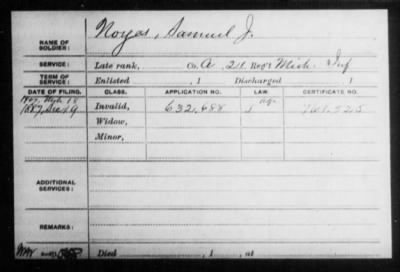 NAME OF SOLDIER: Noyes, Samuel J.
SERVICE: Late rank, Co. A, 21 Reg't Mich. Inf
TERM OF SERVICE: Enlisted , 1 Discharged , 1
DATE OF FILING. CLASS. APPLICATION NO. LAW. CERTIFICATE NO.
1887, Invalid, 632,688
Widow,
Minor,
ADDITIONAL SERVICES:
REMARKS:
Died , 1 , at